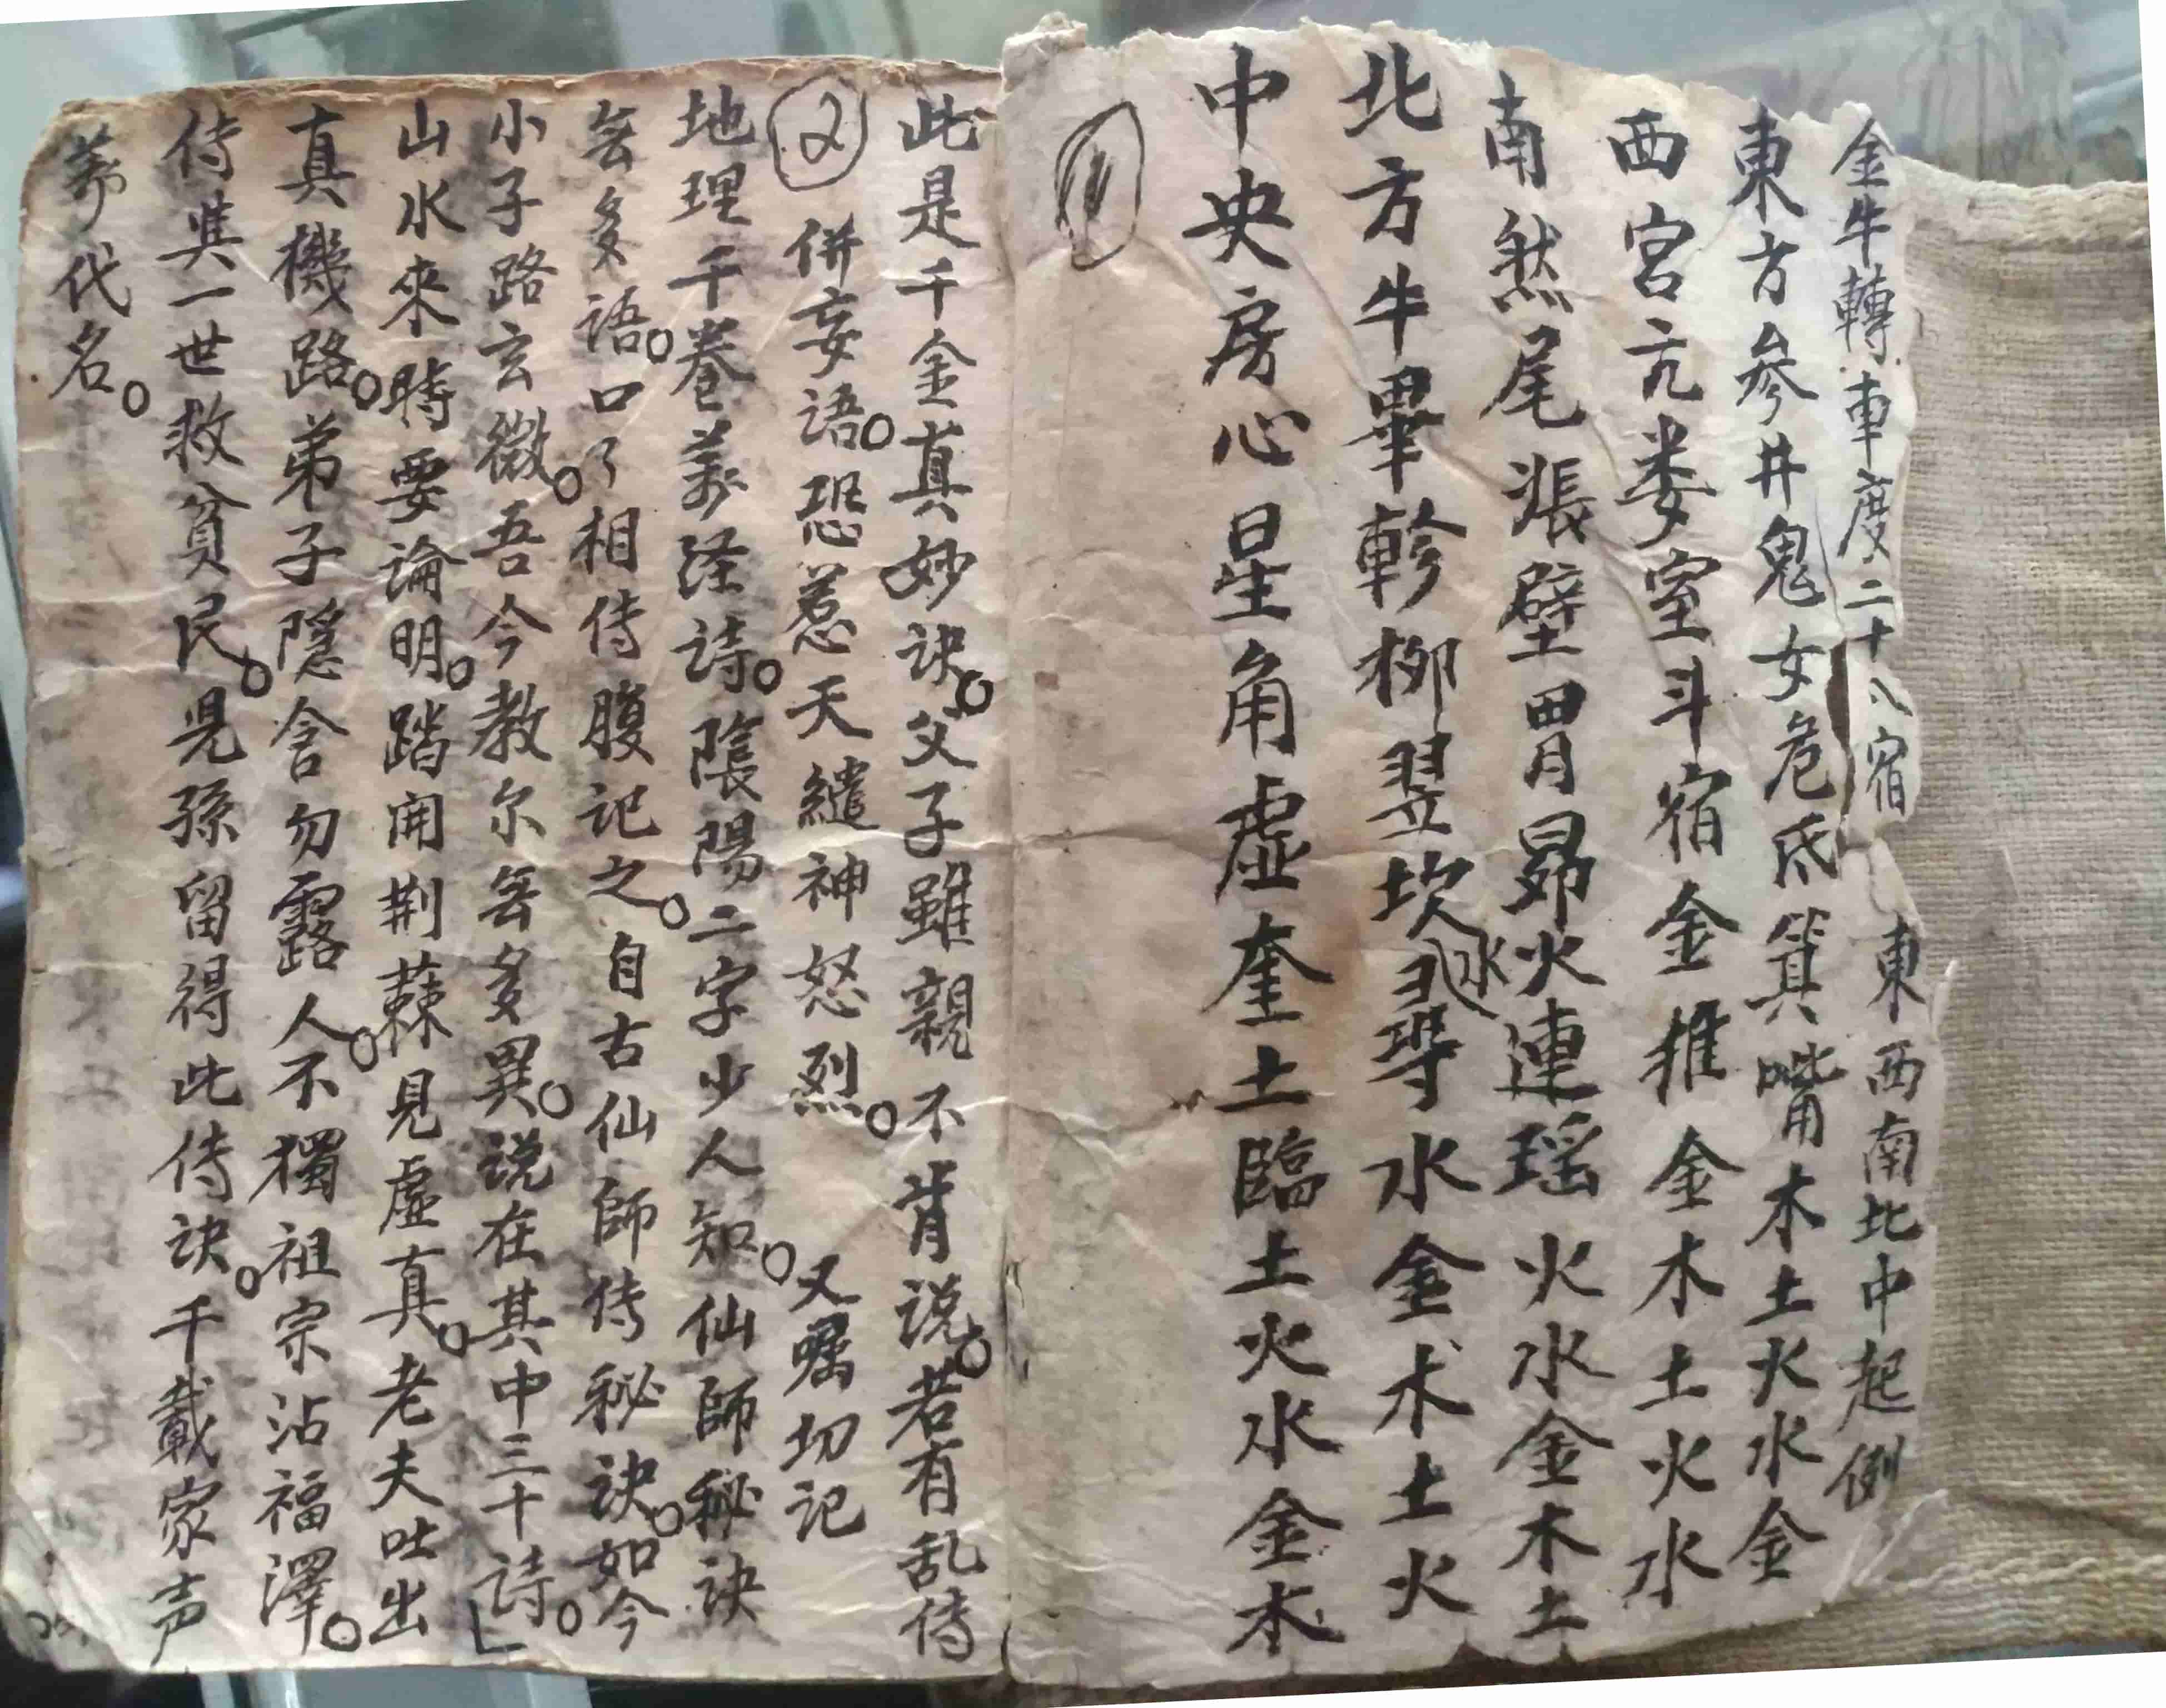 金牛轉車度二十八宿 東西南北中起例
東方參井鬼女危氐箕嘴木土火水金
西宮亢娄室斗宿金推金木土火水
南然尾漲壁胃昴火連瑶火水金木土
北方牛畢軫柳翌坎水尋水金木土火
中央房心星角虚奎土臨土火水金木
1
此是千金真妙诀。父子雖親不肯说。若有乱传
2 併妄语。恐惹天譴神怒烈。 又嘱切记
地理千卷万泾诗。陰陽二字少人知。仙師秘诀
无多语。口了相传腹记之。自古仙師传秘诀。如今
小子路玄微。吾今教尔无多異。说在其中三十诗。
山水來時要論明。踏闭荆蕀見虚真。老夫吐出
真機路。弟子隱含勿露人。不獨祖宗沾福澤。
传其一世救貧民。児孫留得此传诀。千載家声
万代名。